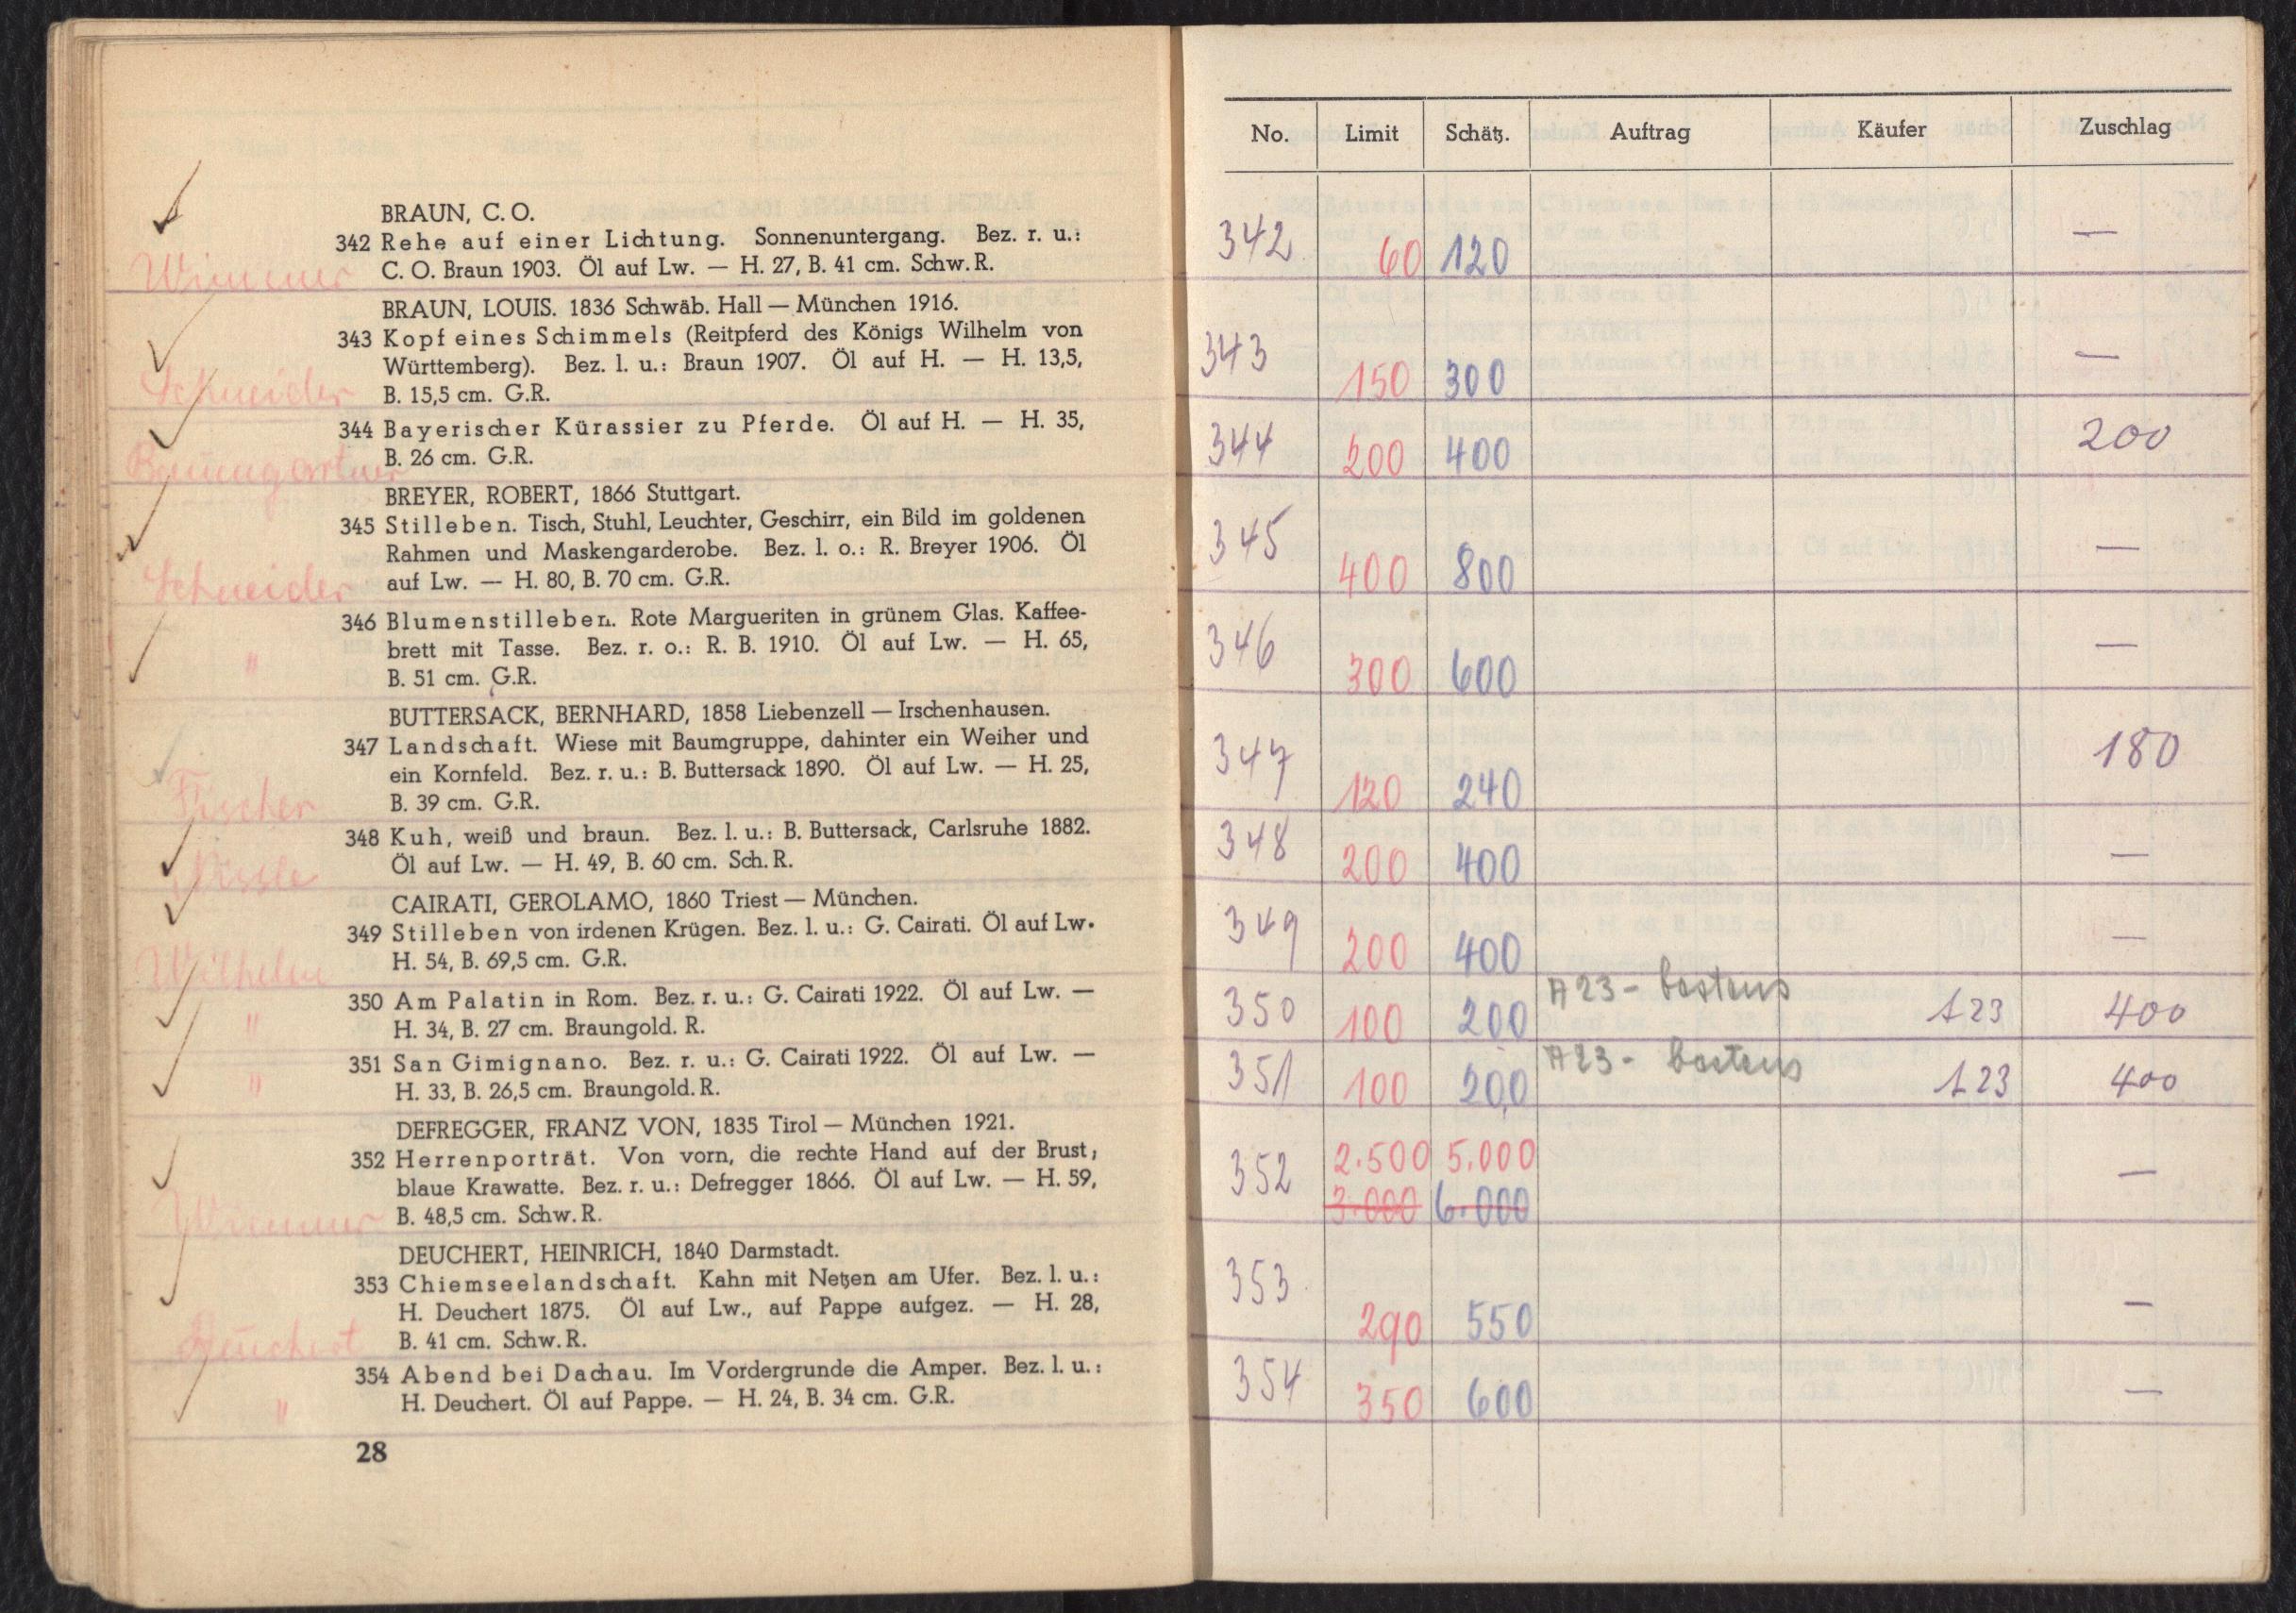 BRAUN, C. O.
342 Rehe auf einer Lichtung. Sonnenuntergang. Bez. r. u.:
C. O. Braun 1903. Öl auf Lw. — H. 27, B. 41 cm. Schw. R.
Wimmer
BRAUN, LOUIS. 1836 Schwäb. Hall — München 1916.
343 Kopf eines Schimmels (Reitpferd des Königs Wilhelm von
Württemberg). Bez. l. u.: Braun 1907. Öl auf H. — H. 13,5,
B. 15,5 cm. G.R.
Schneider
344 Bayerischer Kürassier zu Pferde. Öl auf H. — H. 35,
B. 26 cm. G.R.
Baumgartner
BREYER, ROBERT, 1866 Stuttgart.
345 Stilleben. Tisch, Stuhl, Leuchter, Geschirr, ein Bild im goldenen
Rahmen und Maskengarderobe. Bez. l. o.: R. Breyer 1906. Öl
auf Lw. — H. 80, B. 70 cm. G.R.
Schneider
346 Blumenstilleben. Rote Margueriten in grünem Glas. Kaffee-
brett mit Tasse. Bez. r. o.: R. B. 1910. Öl auf Lw. — H. 65,
"
B. 51 cm. G.R.
BUTTERSACK, BERNHARD, 1858 Liebenzell — Irschenhausen.
347 Landschaft. Wiese mit Baumgruppe, dahinter ein Weiher und
ein Kornfeld. Bez. r. u.: B. Buttersack 1890. Öl auf Lw. — H. 25,
B. 39 cm. G.R.
Fischer
348 Kuh, weiß und braun. Bez. l. u.: B. Buttersack, Carlsruhe 1882.
Öl auf Lw. — H. 49, B. 60 cm. Sch. R.
CAIRATI, GEROLAMO, 1860 Triest — München.
349 Stilleben von irdenen Krügen. Bez. l. u.: G. Cairati. Öl auf Lw.
H. 54, B. 69,5 cm. G.R.
Wilhelm
350 Am Palatin in Rom. Bez. r. u.: G. Cairati 1922. Öl auf Lw. —
H. 34, B. 27 cm. Braungold. R.
"
351 San Gimignano. Bez. r. u.: G. Cairati 1922. Öl auf Lw. —
H. 33, B. 26,5 cm. Braungold. R.
"
DEFREGGER, FRANZ VON, 1835 Tirol — München 1921.
352 Herrenporträt. Von vorn, die rechte Hand auf der Brust,
blaue Krawatte. Bez. r. u.: Defregger 1866. Öl auf Lw. — H. 59,
B. 48,5 cm. Schw. R.
Wimmer
DEUCHERT, HEINRICH, 1840 Darmstadt.
353 Chiemseelandschaft. Kahn mit Netzen am Ufer. Bez. l. u.:
H. Deuchert 1875. Öl auf Lw., auf Pappe aufgez. — H. 28,
B. 41 cm. Schw. R.
Deuchert
354 Abend bei Dachau. Im Vordergrunde die Amper. Bez. l. u.:
H. Deuchert. Öl auf Pappe. — H. 24, B. 34 cm. G.R.
"
28
No. Limit Schätz. Auftrag Käufer Zuschlag
342 60 120 —
343 150 300 —
344 200 400 200
345 400 800 —
346 300 600 —
347 120 240 180
348 200 400 —
349 200 400 —
350 100 200 A23 - bestens A23 400
351 100 200 A23 - bestens A23 400
352 2.500 5.000 —
3.000 6.000
353 290 550 —
354 350 600 —